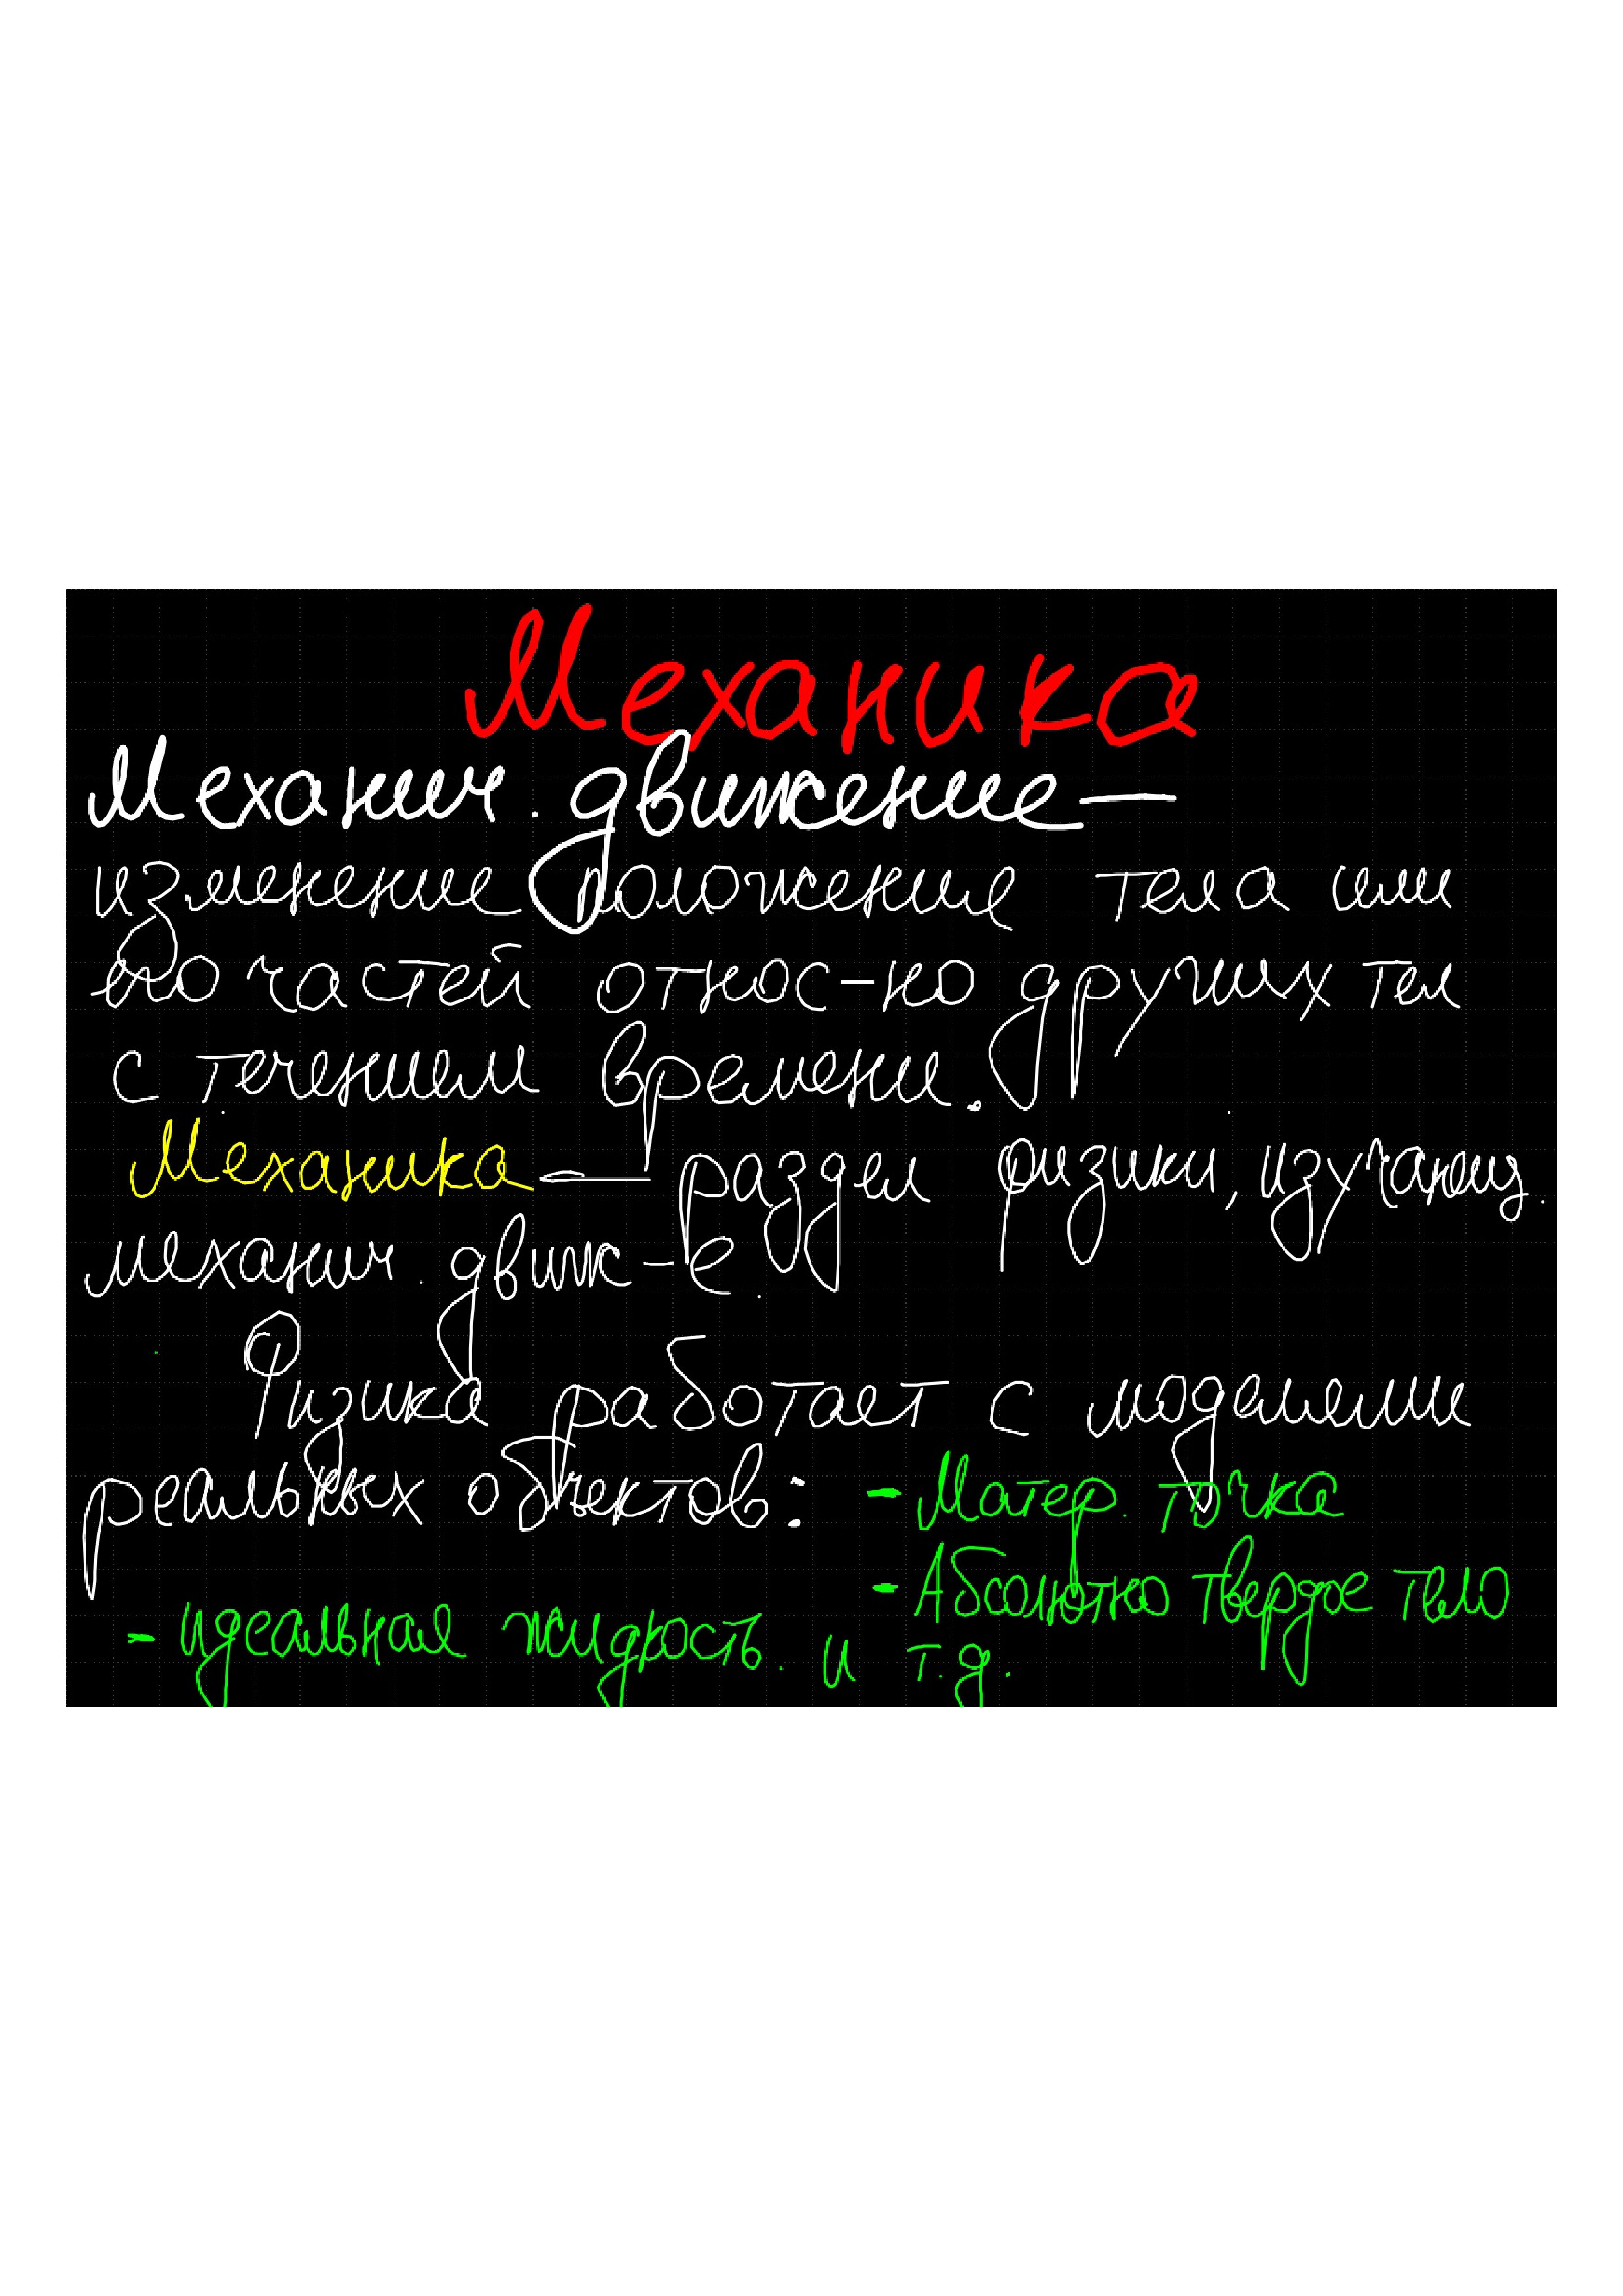 Механика
Механич. движение —
изменение положение тела или
его частей относ-но других тел
с течением времени.
Механика — раздел физики, изучающ.
механич. движ-е.
Физика работает с моделями
реальных объектов: - Матер. точка
- Абсолютно твердое тело
- идеальная жидкость. и т.д.